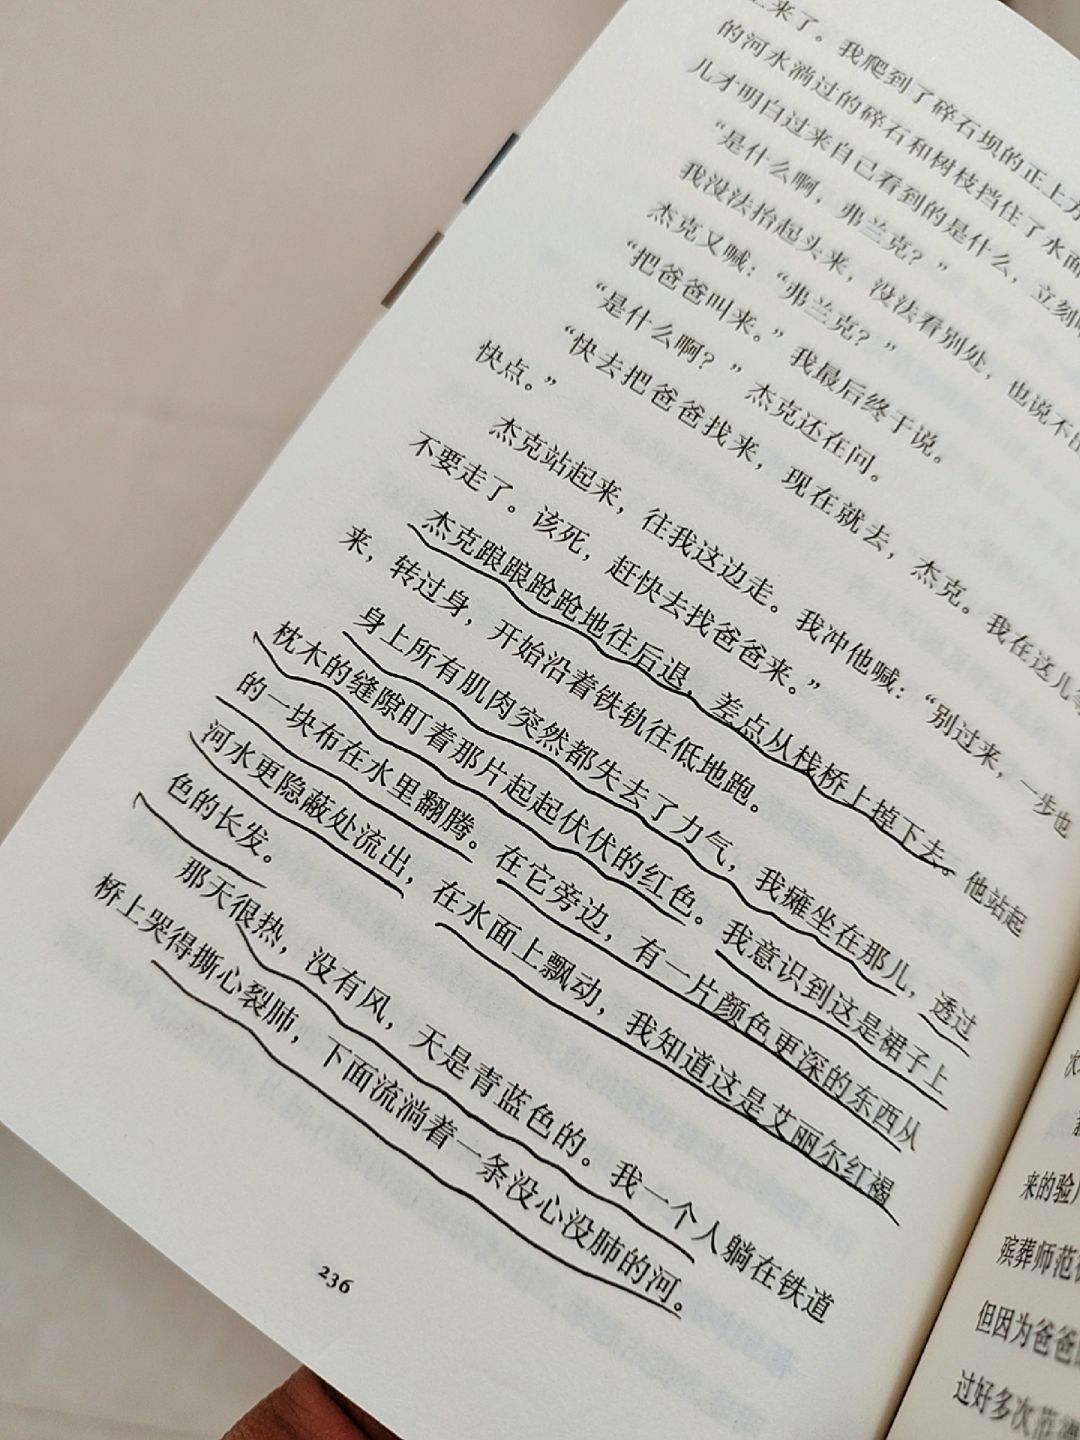 上来了。我爬到了碎石坝的正上方
的河水淌过的碎石和树枝挡住了水面
儿才明白过来自己看到的是什么，立刻
“是什么啊，弗兰克？”
我没法抬起头来，没法看别处，也说不出
杰克又喊：“弗兰克？”
“把爸爸叫来。”我最后终于说。
“是什么啊？”杰克还在问。
“快去把爸爸找来，现在就去，杰克。我在这儿等
快点。”
杰克站起来，往我这边走。我冲他喊：“别过来，一步也
不要走了。该死，赶快去找爸爸来。”
杰克踉踉跄跄地往后退，差点从栈桥上掉下去。他站起
来，转过身，开始沿着铁轨往低地跑。
身上所有肌肉突然都失去了力气，我瘫坐在那儿，透过
枕木的缝隙盯着那片起起伏伏的红色。我意识到这是裙子上
的一块布在水里翻腾。在它旁边，有一片颜色更深的东西从
河水更隐蔽处流出，在水面上飘动，我知道这是艾丽尔红褐
色的长发。
那天很热，没有风，天是青蓝色的。我一个人躺在铁道
桥上哭得撕心裂肺，下面流淌着一条没心没肺的河。
236
次
来的验
殡葬师范
但因为爸爸
过好多次